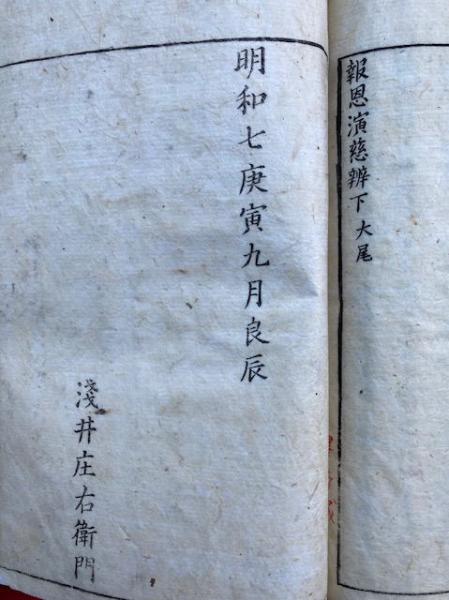 報恩演慈辨下大尾
明和七庚寅九月良辰
淺井庄右衛門